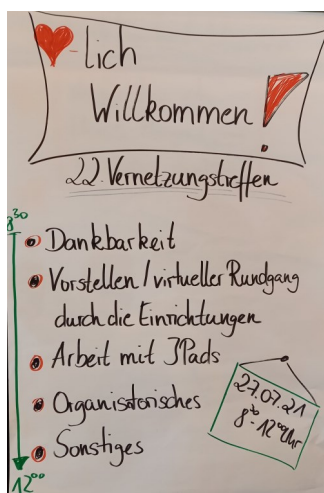 ♥-lich
Willkommen!
22. Vernetzungstreffen
8³⁰
Dankbarkeit
Vorstellen / virtueller Rundgang
durch die Einrichtungen
Arbeit mit IPads
Organisatorisches
Sonstiges
12⁰⁰
27.07.21
8³⁰-12⁰⁰Uhr